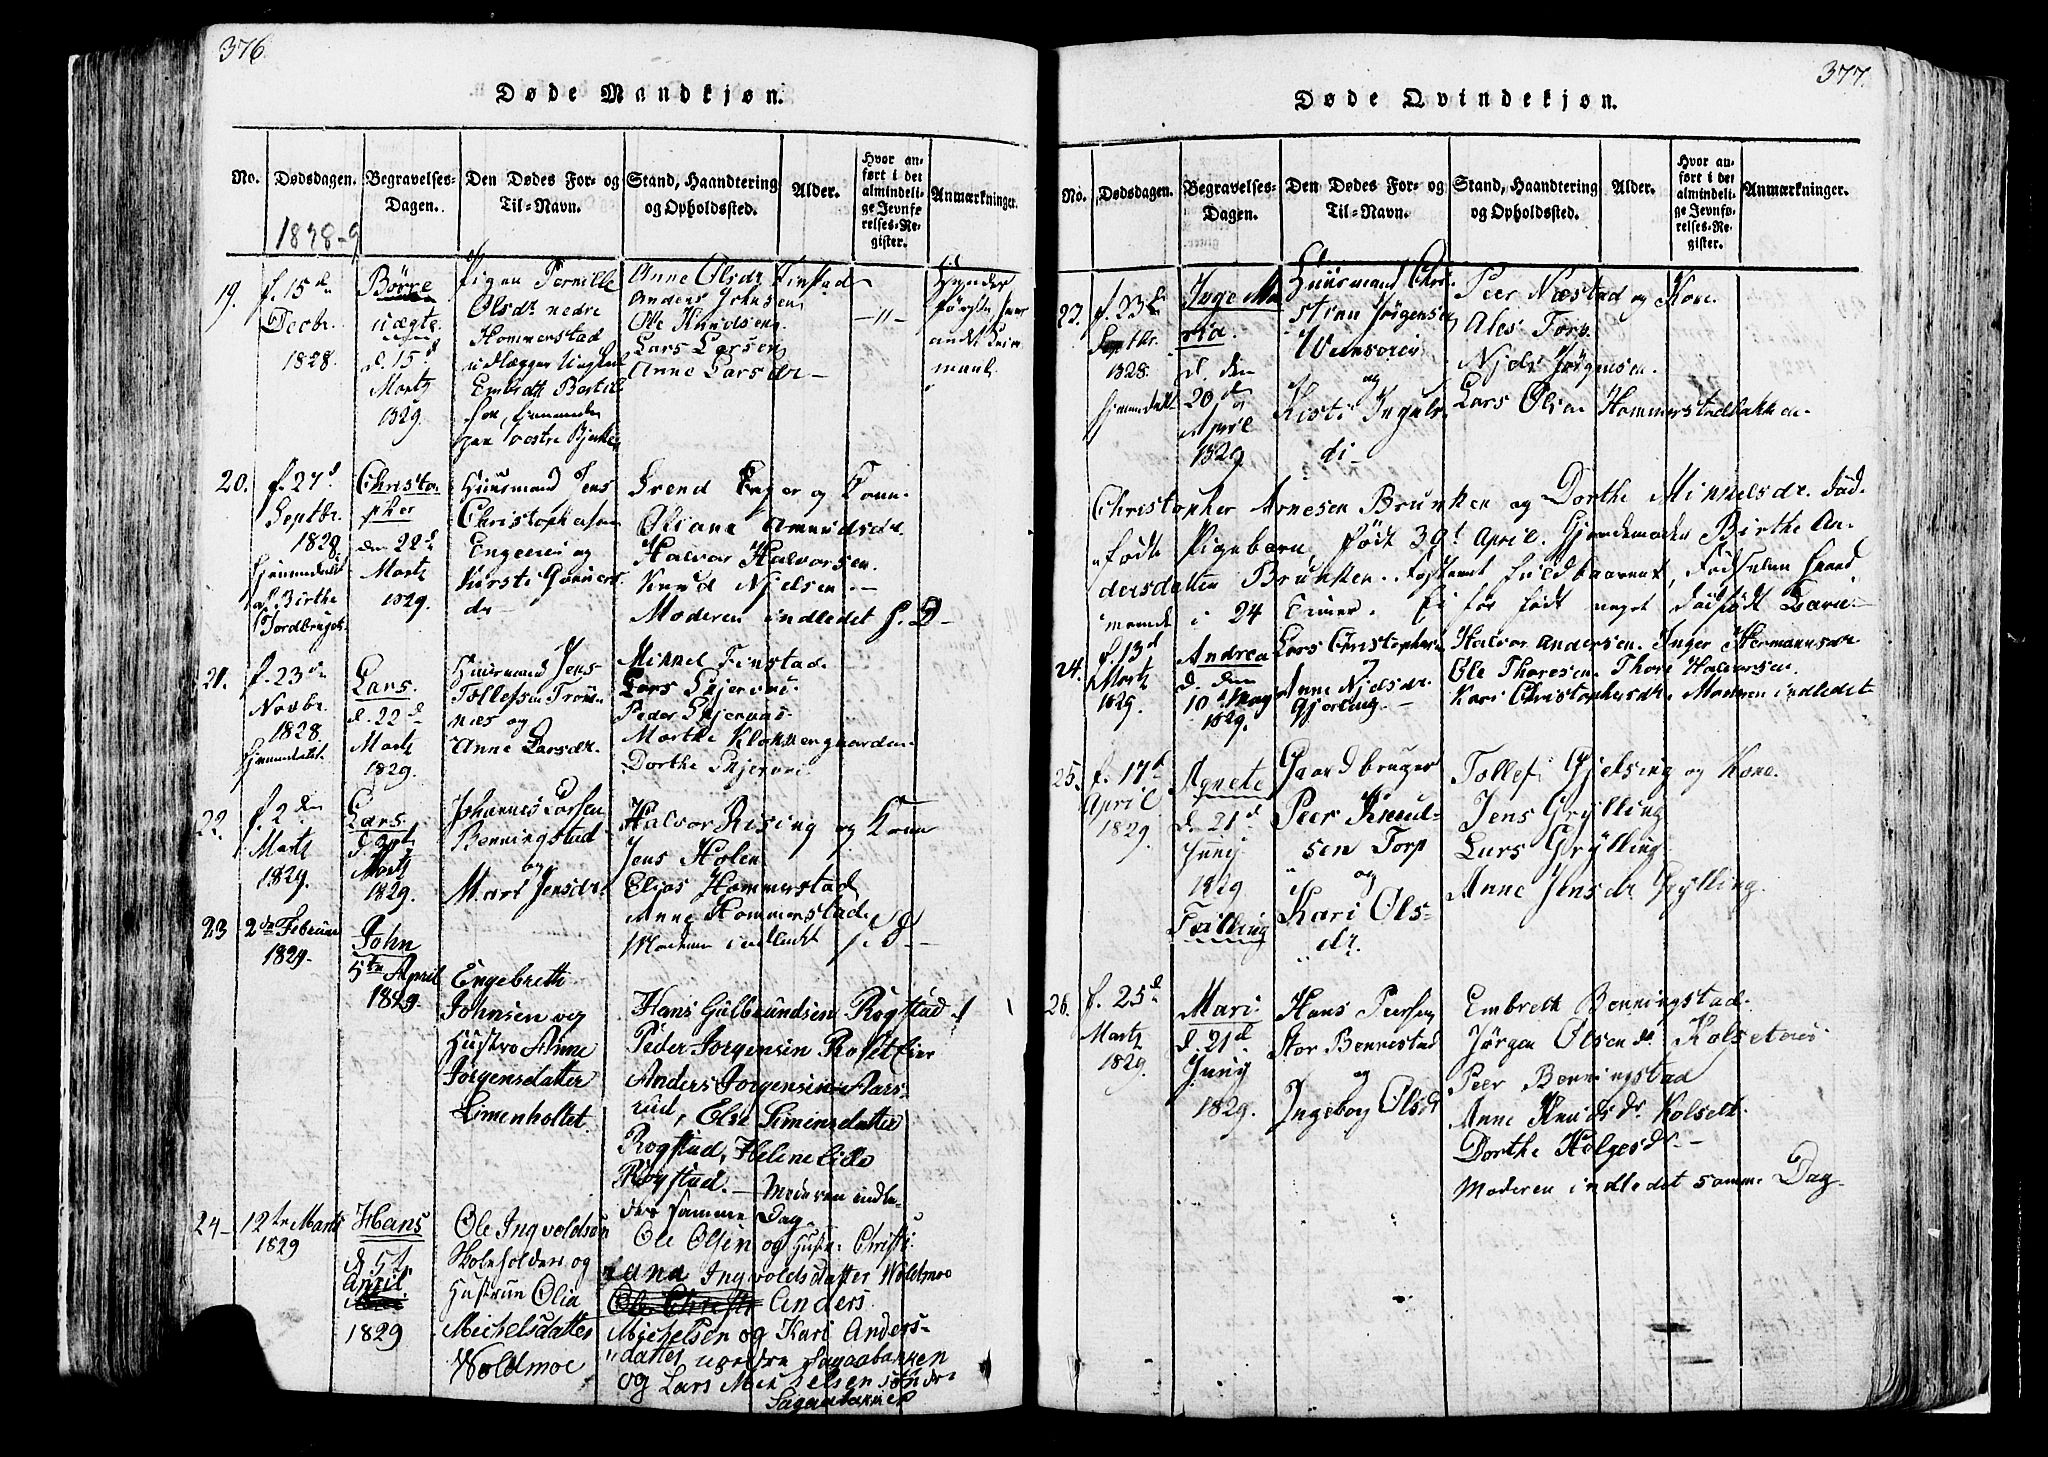 376
Døde Mandkjøn.
No.
Dødsdagen.
Begravelses-
Dagen.
Den Dødes For- og
Til-Navn.
Stand, Haandtering
og Opholdssted.
Alder.
Hvor an-
ført i det
almindeli-
ge Jevnfø-
relses-Re-
gister.
Anmærkninger.
1828-9
19.
f. 15de
Decbr.
1828.
Börre
uægte
d. 15d
Martz
1829.
Pigen Pernille
Olsdr nedre
Hommerstad
Embrett Bertel
Anne Olsdr Finstad
Anders Johnsen
Ole Knudsen
Lars Larsen
Anne Larsdr
-"-
20.
f. 27d
Septbr.
1828.
Hjemmedøbt
af Birthe
Christo
pher
den 22d
Martz
1829.
Huusmand Jens
Christophersen
Engeeie og
Kirsti
dr
Svend Enger og Kone.
Oliane Amundsdr.
Halvor Halvorsen.
Knud Nielsen.
Moderen indledet s. D.
21.
f. 23de
Novbr.
1828.
Hjemmedøbt.
Lars.
d. 22d
Martz
1829.
Huusmand Jens
Tollefsen
og
Anne Larsdr.
Mikkel Finstad.
Lars
Peder
Marthe Klokkergaarden
Dorthe
22.
f. 2den
Martz
1829.
Lars
Martz
1829.
Johannes Larsen
Benningstad
og
Mari Jensdr
Halvor Rising og Kone
Jens Holen
Elias Hommerstad
Anne Hommerstad
Moderen indledet s. D.
23
2den Februar
1829.
John
5te April
1829.
Engebreth
Johnsen og
Hustro Anne
Jörgensdatter
Limenholtet.
Hans Gulbrandsen Rogstad
Peder Jorgensen Roset Eier
Anders Jorgensen Aars-
rud, Else Simensdatter
Rogstad, Helene
Rogstad. Moderen indle-
det samme Dag.
24
12te Marts
1829
Hans
d. 5te
April
1829
Ole Ingvoldsen
Skoleholder og
Hustrue Olia
Michelsdatter
Woldmoe
Ole Olsen og Hustr. Christi-
ana Ingvoldsdatter Woldmoe
Anders
Michelsen og Kari Anders-
datter nordre Sagaabakken
og Lars Michelsen söndre
Sagaabakken
377.
Døde Qvindekjøn.
No.
Dødsdagen.
Begravelses-
Dagen.
Den Dødes For- og
Til-Navn.
Stand, Haandtering
og Opholdssted.
Alder.
Hvor an-
ført i det
almindeli-
ge Jevnfø-
relses-Re-
gister.
Anmærkninger.
23.
f. 23d
Septbr.
1828.
Hjemmedøbt
Inge Ma
ria.
d. den
20de
April
1829
Huusmand Chri
stian Jörgensen
og
Kisti Ingulv
di
Peer Næstad og Kone
Ales Torp.
Niels Jörgensen.
Lars Olsen Hommerstadbakken
Christopher Arnesen Brunken og Dorthe Mikkelsdr. död-
födte Pigebarn, født 29d April. Gjordemoder Birthe An-
dersdatter Brunken. Fosteret fuldbaaren, Fødselen
i 24 Timer. Ei för födt noget dödfödt Barn.
24.
f. 13d
Martz
1829.
Andrea
d. den
10d May
1829.
Lars Christophersen
og
Anne Nielsdr
Gjerting.
Halvor Andersen. Inger Hermannsdr
Ole Thoresen. Thore Halvorsen.
Kari Christophersdr. Moderen indledet
25.
f. 17d
April
1829.
Agnete
d. 21d
Junij
1829
Tvilling
Gaardbruger
Peer Knud-
sen Torp
og
Kari Ols-
dr.
Tollef Gjelsing og Kone.
Jens Grylling
Lars Grylling
Anne Jensdr Grylling.
26.
f. 25d
Martz
1829.
Mari
d. 21d
Junij
1829.
Hans Peersen
Stor Bennestad
og
Ingeborg Olsdr
Embreth Benningstad.
Jörgen Olsen Kolset
Peer Benningstad
Anne Knudsdr. Kolset.
Dorthe Holgesdr.
Moderen indledet samme Dag.